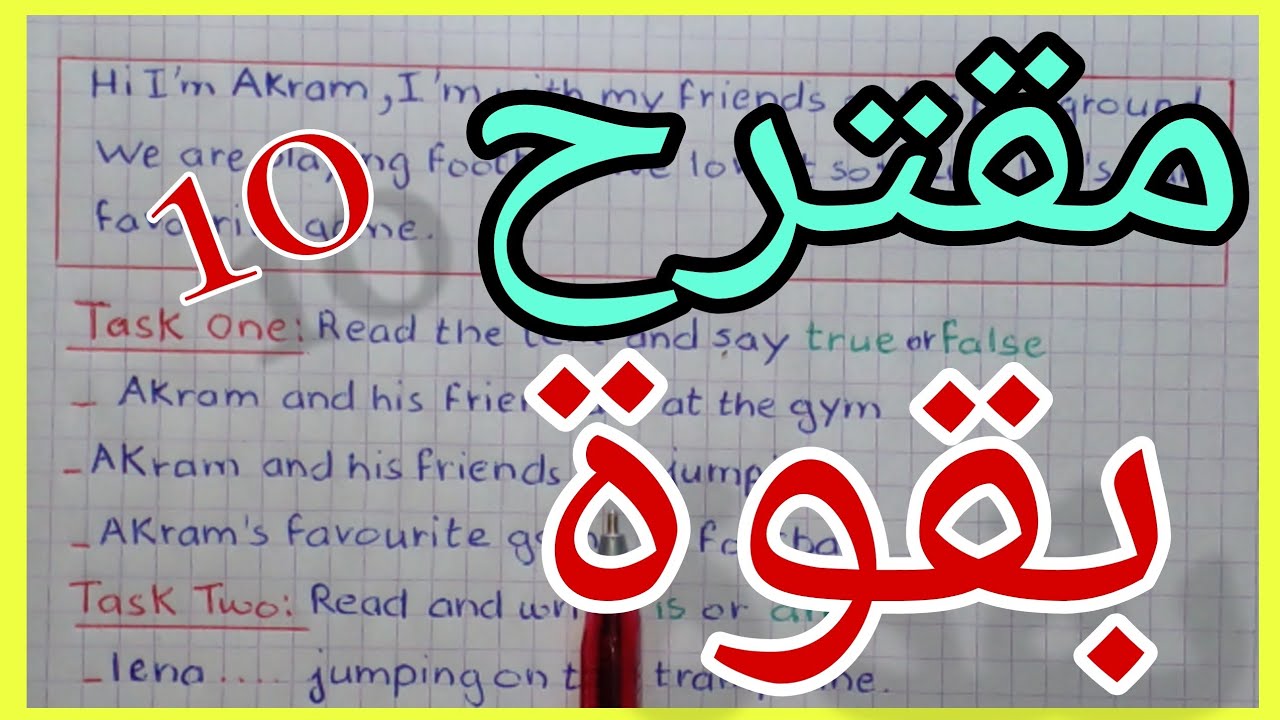 Hi I'm Akram, I'm with my friends ground
We are playing foot love it so
favourite game.
10
مقترح
بقوة
Task one: Read the text and say true or false
_ Akram and his friends at the gym
_ Akram and his friends jumping
_ Akram's favourite game football
Task Two: Read and write is or are
_ lena .... jumping on the trampoline.